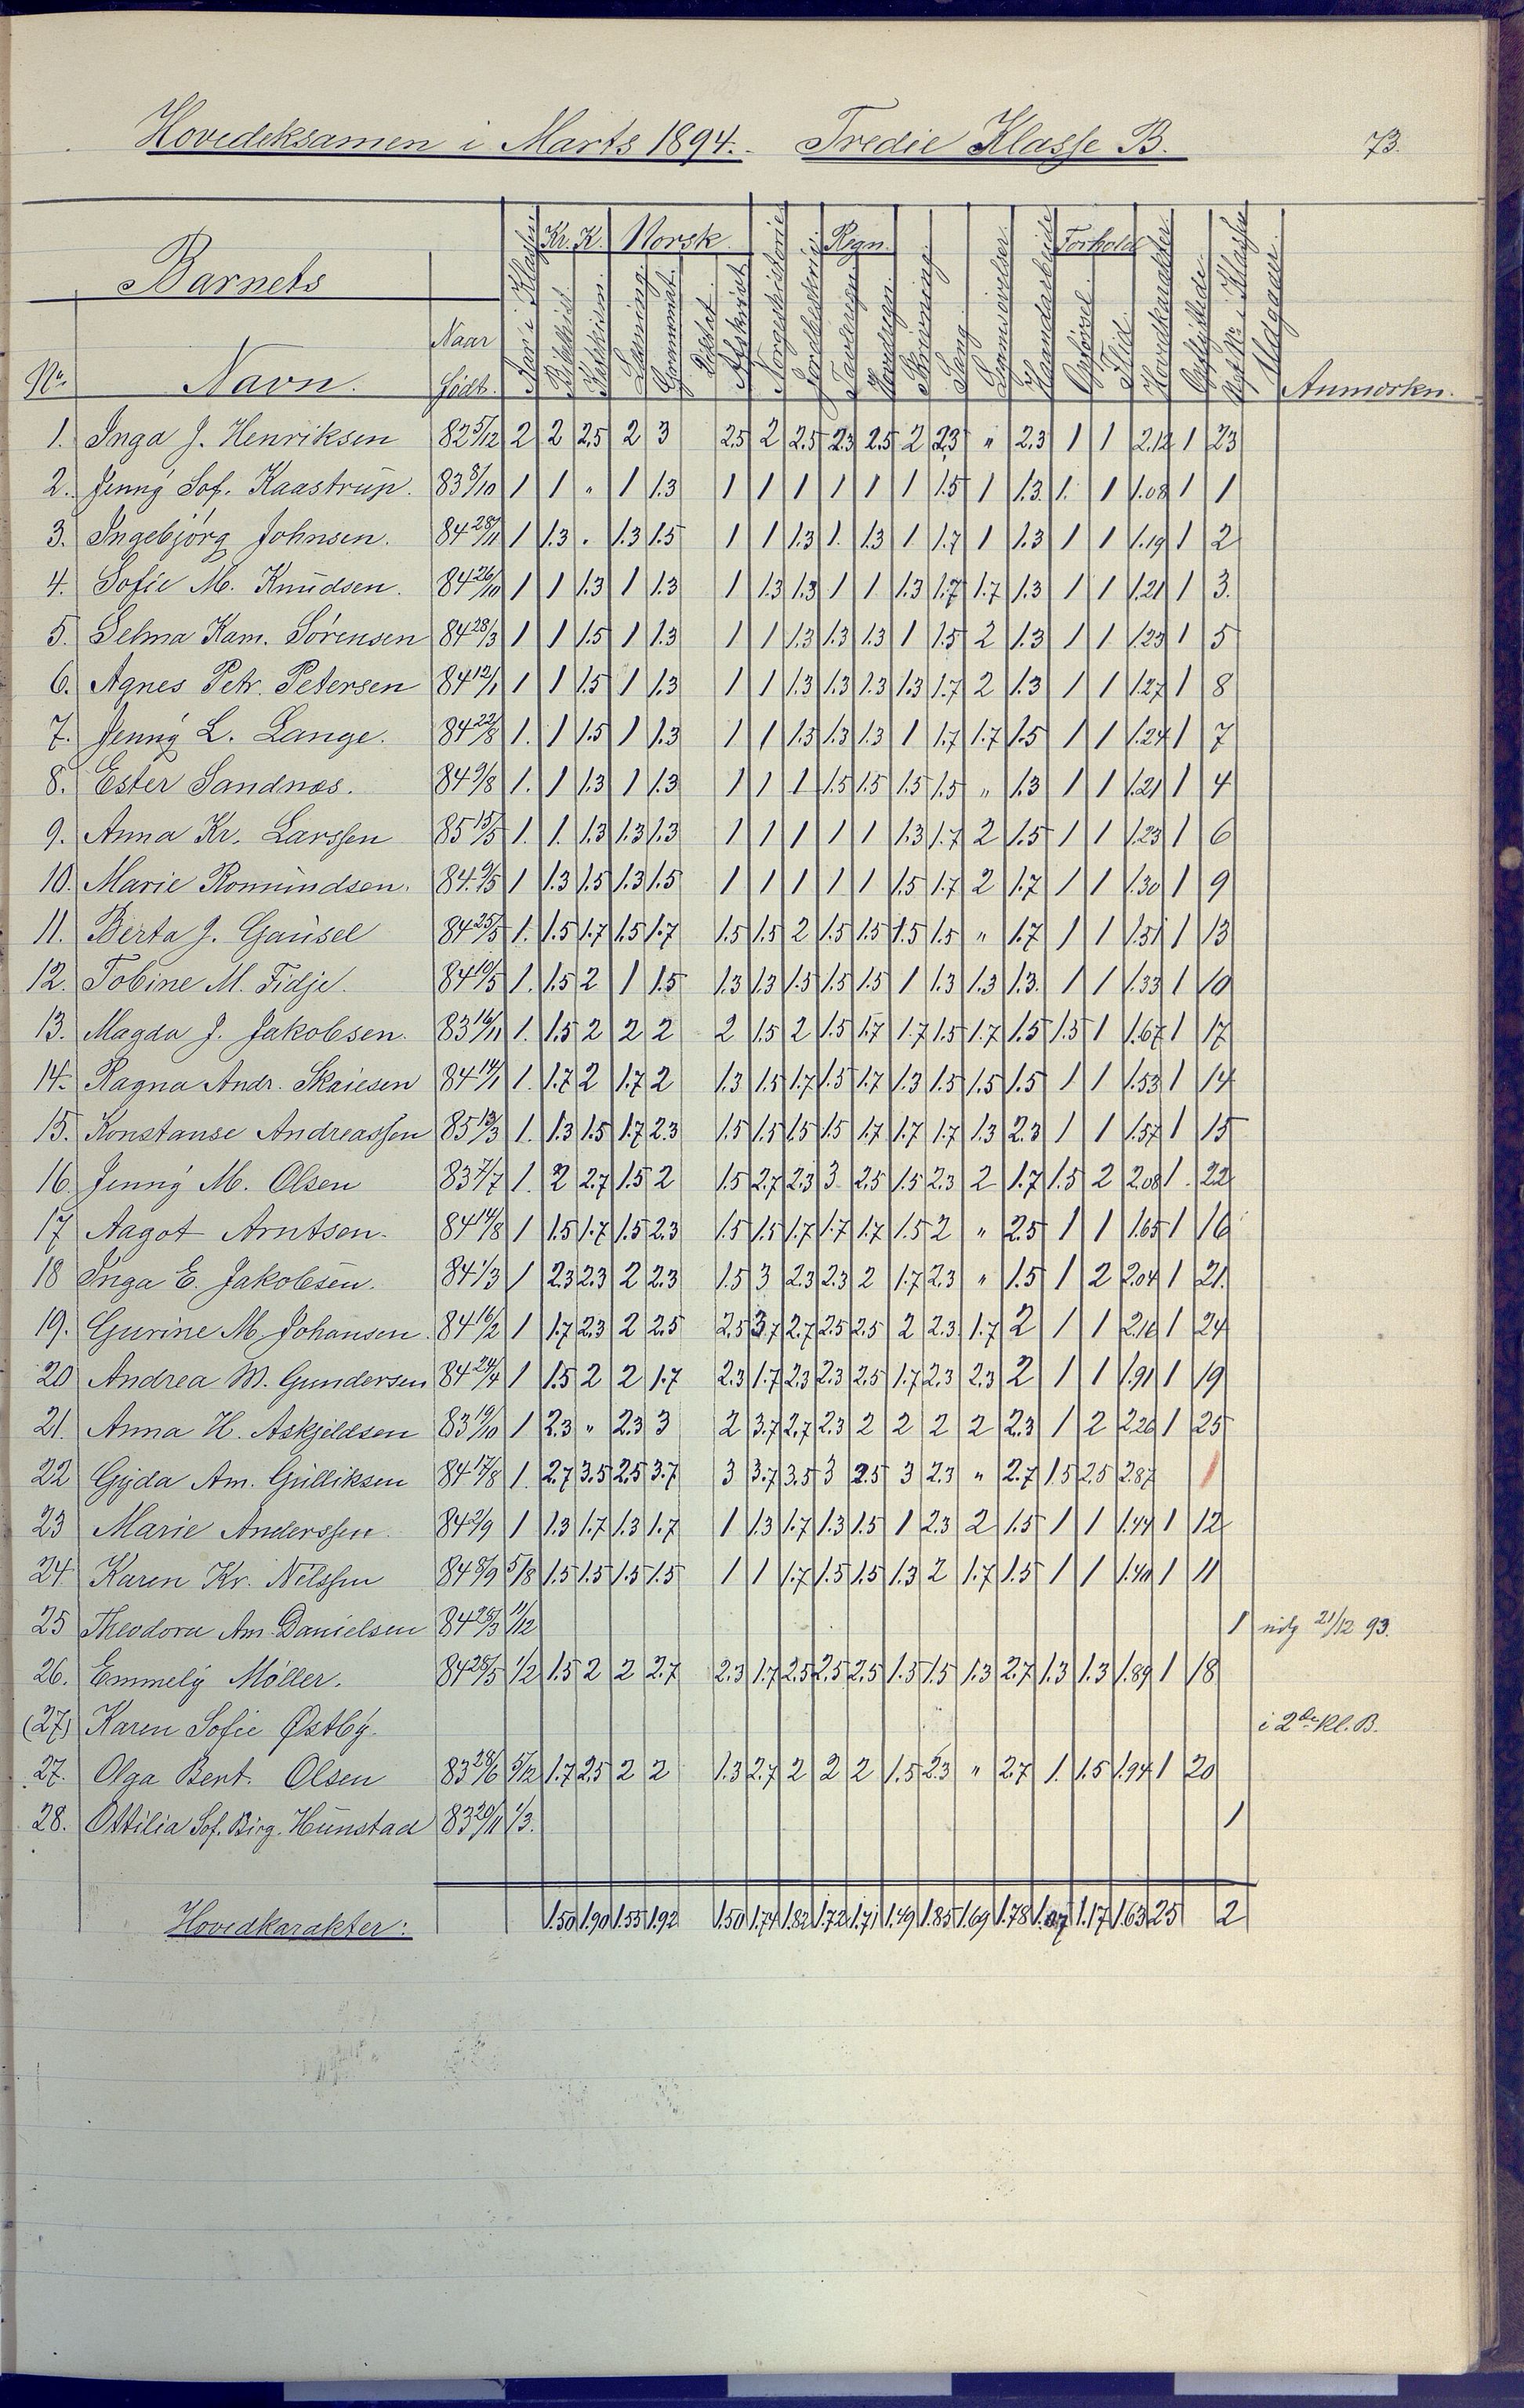 Hovedeksamen i Marts 1894. Tredie Klasse B. 73.
Kr. K. Norsk. Regn. Forhold
Barnets
No. Navn. Naar Født. Aar i Klassen Bibelhist. Katekism. Læsning. Grammat. Diktat. Afskrivt Norgeshistorie Jordbeskriv. Tavleregn. Hovedregn. Skrivning. Sang. Lemsøvelser. Haandarbeide Opførsel. Flid. Hovedkarakter. Opflyttede. Nyt No. i Klassen Udgaaet. Anmærkn.
1. Inga J. Henriksen 82 5/12 2 2 2.5 2 3 2.5 2 2.5 2.3 2.5 2 2.3 " 2.3 1 1 2.12 1 23
2. Jenny Sof. Kaastrup. 83 8/10 1 1 " 1 1.3 1 1 1 1 1 1 1.5 1 1.3 1. 1 1.08 1 1
3. Ingebjørg Johnsen. 84 28/11 1 1.3 . 1.3 1.5 1 1 1.3 1. 1.3 1 1.7 1 1.3 1 1 1.19 1 2
4. Sofie M. Knudsen. 84 26/10 1 1 1.3 1 1.3 1 1.3 1.3 1 1 1.3 1.7 1.7 1.3 1 1 1.21 1 3.
5. Selma Kam. Sørensen 84 28/3 1 1 1.5 1 1.3 1 1 1.3 1.3 1.3 1 1.5 2 1.3 1 1 1.23 1 5
6. Agnes Petr. Petersen 84 12/1 1 1 1.5 1 1.3 1 1 1.3 1.3 1.3 1.3 1.7 2 1.3 1 1 1.27 1 8
7. Jenny L. Lange. 84 22/8 1. 1 1.5 1 1.3 1 1 1.3 1.3 1.3 1 1.7 1.7 1.5 1 1 1.24 1 7
8. Ester Sandnæs. 84 9/8 1. 1 1.3 1 1.3 1 1 1 1.5 1.5 1.5 1.5 " 1.3 1 1 1.21 1 4
9. Anna Kr. Larssen 85 15/5 1. 1. 1.3 1.3 1.3 1 1 1 1 1 1.3 1.7 2 1.5 1 1 1.23 1 6
10. Marie Romundsen. 84. 9/5 1 1.3 1.5 1.3 1.5 1 1 1 1 1 1.5 1.7 2 1.7 1 1 1.30 1 9
11. Berta J. Gausel 84 25/5 1. 1.5 1.7 1.5 1.7 1.5 1.5 2 1.5 1.5 1.5 1.5 " 1.7 1 1 1.51 1 13
12. Tobine M. Fidje. 84 10/5 1. 1.5 2 1 1.5 1.3 1.3 1.5 1.5 1.5 1 1.3 1.3 1.3. 1 1 1.33 1 10
13. Magda J. Jakobsen. 83 16/11 1. 1.5 2 2 2 2 1.5 2 1.5 1.7 1.7 1.5 1.7 1.5 1.5 1 1.67 1 17
14. Ragna Andr. Skaiesen 84 14/1 1. 1.7 2 1.7 2 1.3 1.5 1.7 1.5 1.7 1.3 1.5 1.5 1.5 1 1 1.53 1 14
15. Konstanse Andreassen 85 13/3 1. 1.3 1.5 1.7 2.3 1.5 1.5 1.5 1.5 1.7 1.7 1.7 1.3 2.3 1 1 1.57 1 15
16. Jenny M. Olsen 83 7/7 1. 2 2.7 1.5 2 1.5 2.7 2.3 3 2.5 1.5 2.3 2 1.7 1.5 2 2.08 1. 22
17 Aagot Arntsen. 84 14/8 1 1.5 1.7 1.5 2.3 1.5 1.5 1.7 1.7 1.7 1.5 2 " 2.5 1 1 1.65 1 16
18 Inga E. Jakobsen. 84 1/3 1 2.3 2.3 2 2.3 1.5 3 2.3 2.3 2 1.7 2.3 " 1.5 1 2 2.04 1 21.
19. Gurine M. Johansen. 84 16/2 1 1.7 2.3 2 2.5 2.5 3.7 2.7 2.5 2.5 2 2.3 1.7 2 1 1 2.16 1 24
20 Andrea M. Gundersen 84 24/4 1 1.5 2 2 1.7 2.3 1.7 2.3 2.3 2.5 1.7 2.3 2.3 2 1 1 1.91 1 19
21. Anna H. Askjeldsen 83 19/10 1 2.3 " 2.3 3 2 3.7 2.7 2.3 2 2 2 2 2.3 1 2 2.26 1 25
22 Gyda Am. Gulliksen 84 17/8 1. 2.7 3.5 2.5 3.7 3 3.7 3.5 3 2.5 3 2.3 " 2.7 1.5 2.5 2.87 1
23 Marie Anderssen. 84 2/9 1 1.3 1.7 1.3 1.7 1 1.3 1.7 1.3 1.5 1 2.3 2 1.5 1 1 1.44 1 12
24. Karen Kr. Nilssen 84 8/9 5/8 1.5 1.5 1.5 1.5 1 1 1.7 1.5 1.5 1.3 2 1.7 1.5 1 1 1.40 1 11
25 Theodora Am. Danielsen 84 28/3 11/12 1 udg 21/12 93.
26. Emmely Møller. 84 28/5 1/2 1.5 2 2 2.7 2.3 1.7 2.5 2.5 2.5 1.5 1.5 1.3 2.7 1.3 1.3 1.89 1 18
(27) Karen Sofie Østby. i 2den Kl. B.
27. Olga Bert. Olsen 83 28/6 5/12 1.7 2.5 2 2 1.3 2.7 2 2 2 1.5 2.3 " 2.7 1. 1.5 1.94 1 20
28. Ottilia Sof. Birg. Hunstad 83 20/11 1/3. 1
Hovedkarakter: 1.50 1.90 1.55 1.92 1.50 1.74 1.82 1.72 1.71 1.49 1.85 1.69 1.78 1.07 1.17 1.63 25 2